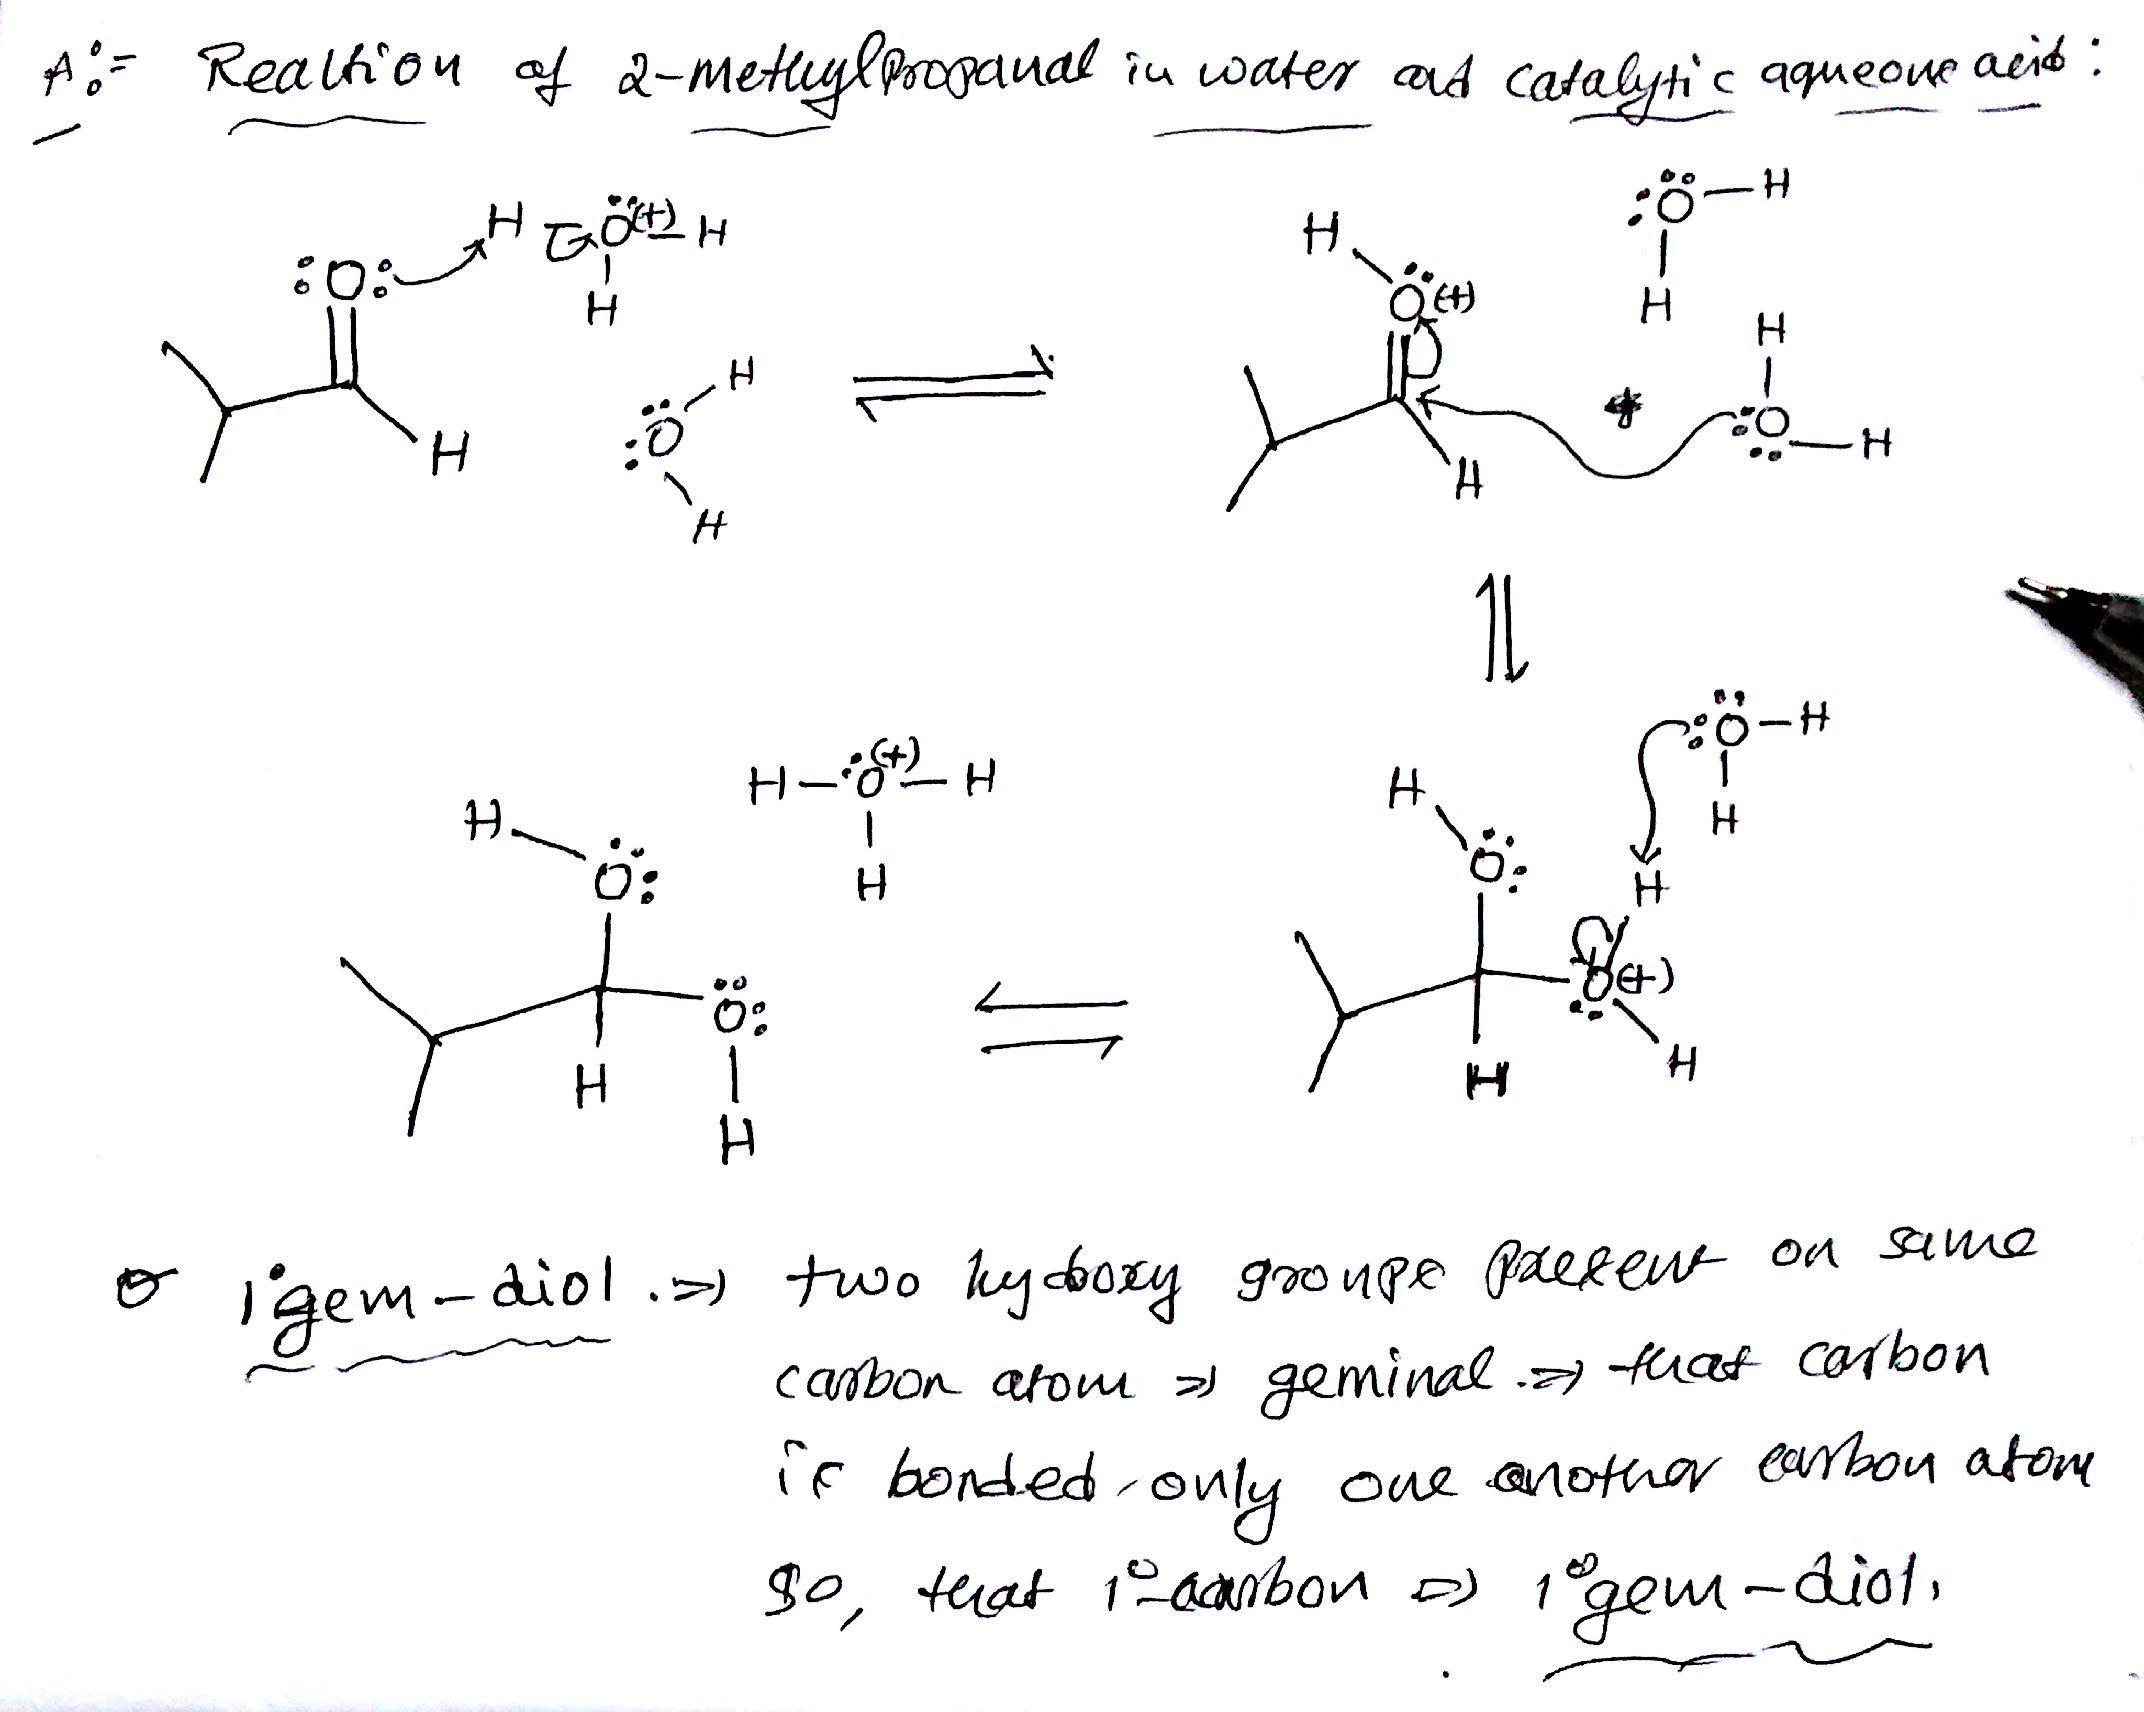 A:= Reaction of 2-methylpropanal in water and catalytic aqueous acid:
H O (+) H
:O: H
H H
H
:O
H
H
:O – H
H
O (+)
H
H
:O – H
H
H – O (+) – H
H
H
O:
H
O:
H
H
:O – H
H
H
O:
H
O (+)
H
H
1° gem-diol. => two hydroxy groups present on same
carbon atom => geminal. => that carbon
is bonded only one another carbon atom
So, that 1°-carbon => 1° gem-diol.